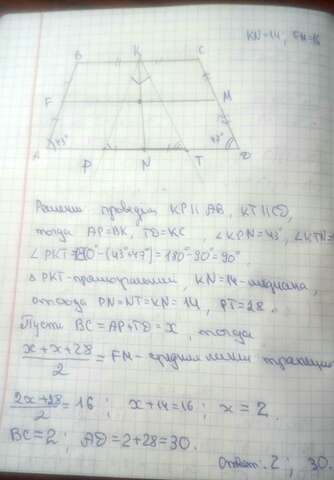 KN=14, FM=16
B K C
F M
A 43° P N T 47° D
Решение проведем KP || AB, KT || CD,
тогда AP=BK, TD=KC ∠KPN=43°, ∠KTN=
∠PKT=180°-(43°+47°)=180°-90°=90°.
PKT-прямоугольный, KN=14-медиана,
отсюда PN=NT=KN=14, PT=28.
Пусть BC=AP+TD=x, тогда
x+x+28/2 = FM-средняя линия трапеции
2x+28/2=16; x+14=16; x=2.
BC=2; AD=2+28=30.
Ответ: 2; 30.